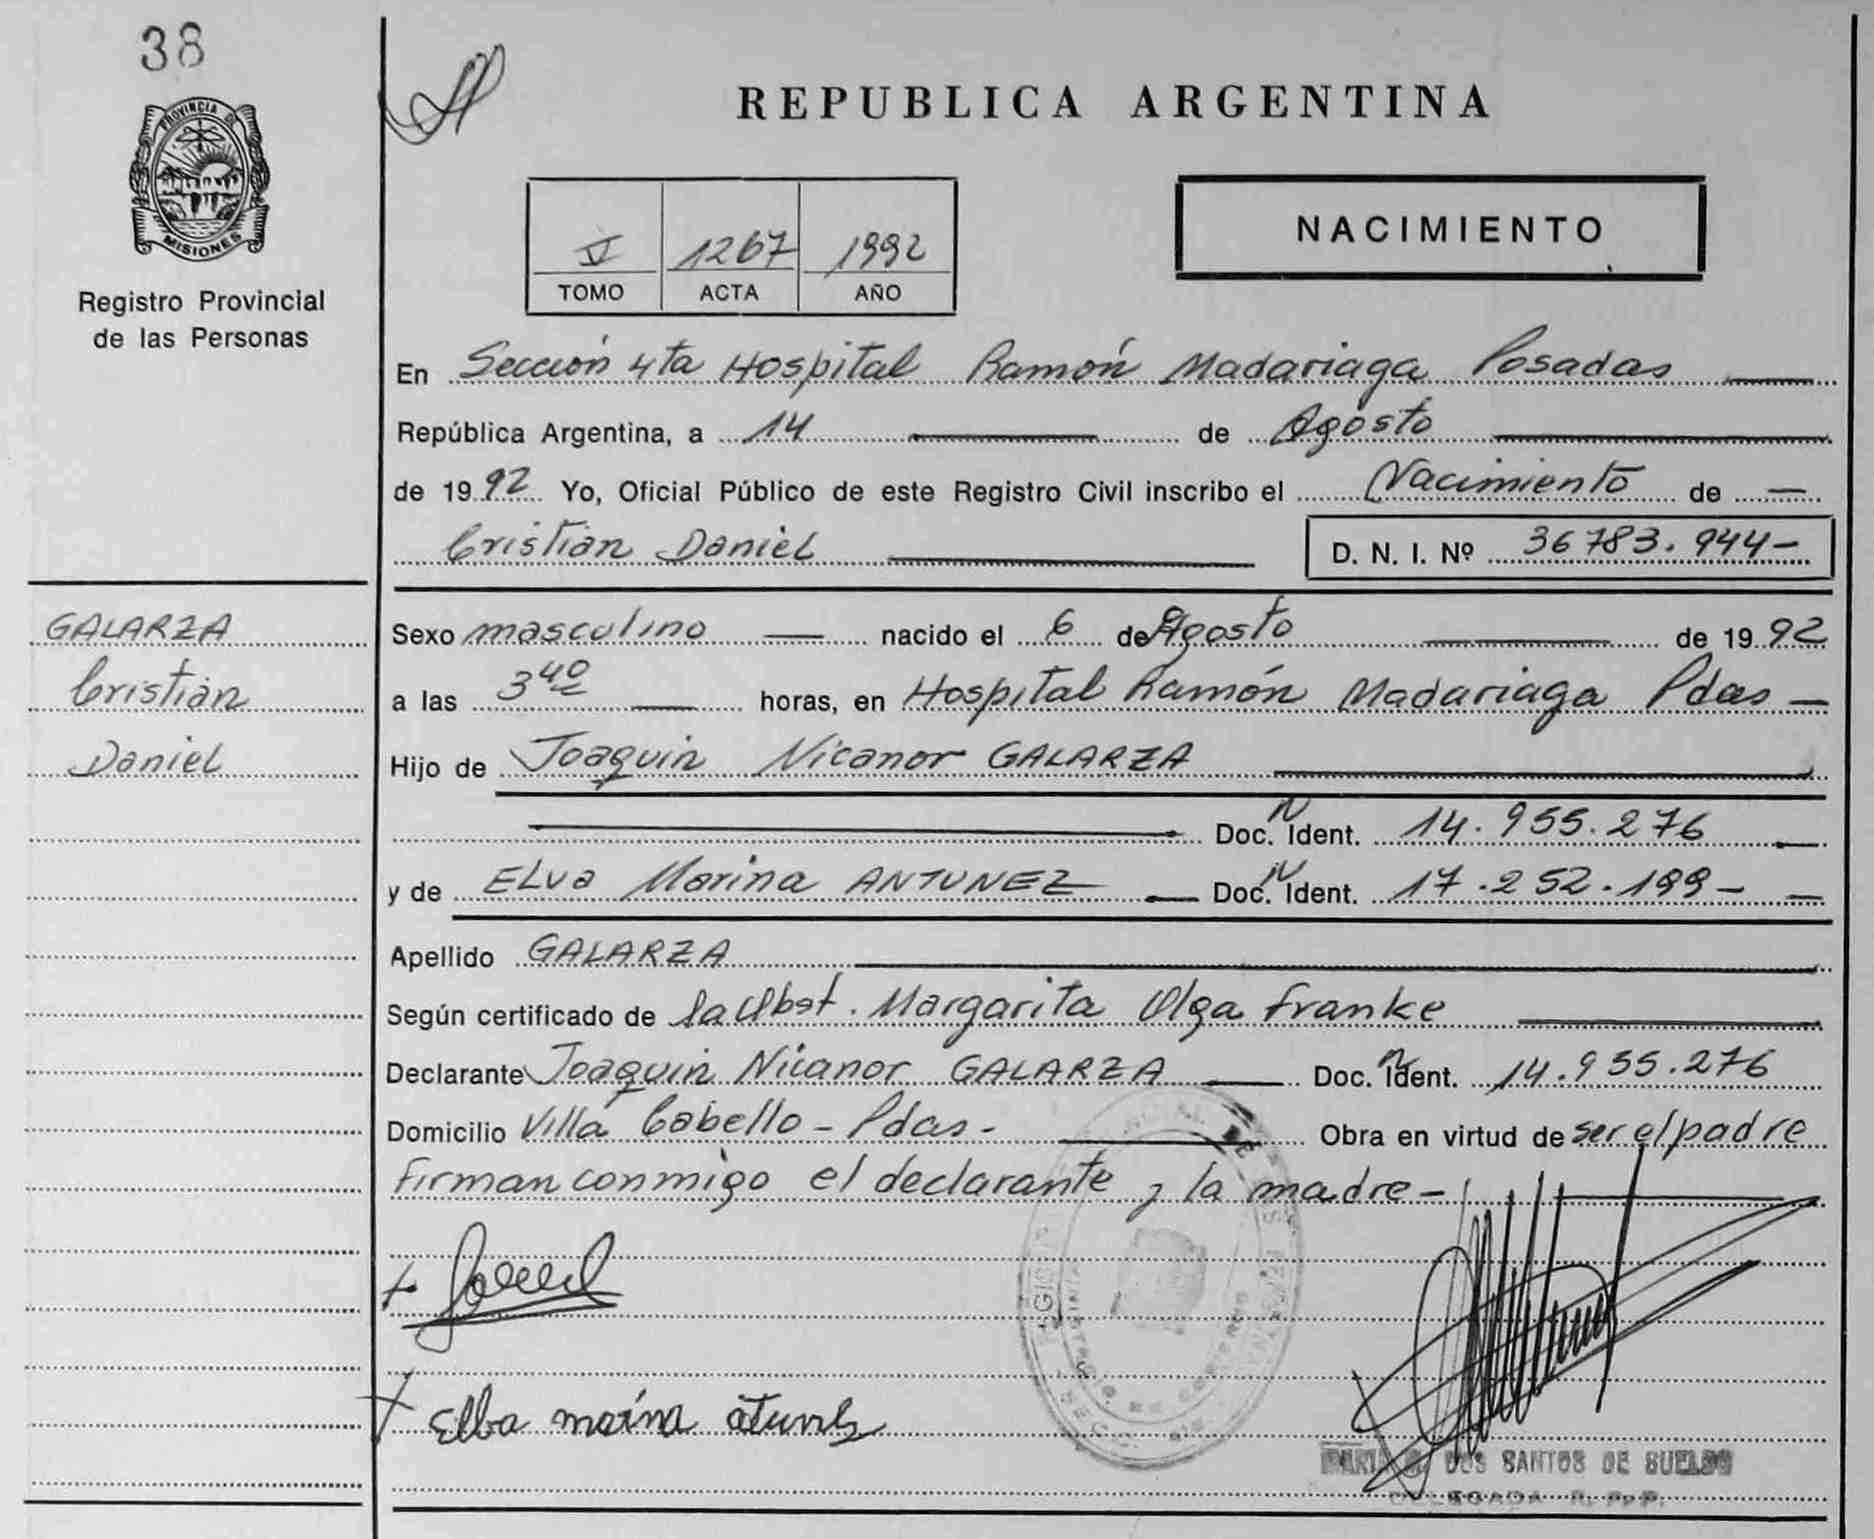 38
PROVINCIA DE
MISIONES
Registro Provincial
de las Personas
REPUBLICA ARGENTINA
V 1267 1992
TOMO ACTA AÑO
NACIMIENTO
En Sección 4ta Hospital Ramón Madariaga Posadas
República Argentina, a 14 de Agosto
de 1992 Yo, Oficial Público de este Registro Civil inscribo el Nacimiento de
Cristian Daniel D. N. I. Nº 36783.944-
GALARZA
Cristian
Daniel
Sexo masculino nacido el 6 de Agosto de 1992
a las 3 40 horas, en Hospital Ramón Madariaga Pdas
Hijo de Joaquin Nicanor GALARZA
Doc. N Ident. 14.955.276
y de ELva Marina ANTUNEZ Doc. N Ident. 17.252.199-
Apellido GALARZA
Según certificado de la Obst. Margarita Olga Franke
Declarante Joaquin Nicanor GALARZA Doc. N Ident. 14.955.276
Domicilio Villa Cabello - Pdas - Obra en virtud de ser el padre
Firman conmigo el declarante y la madre -
Elba
DOS SANTOS DE SUELDO
DELEGADA R. P. P.